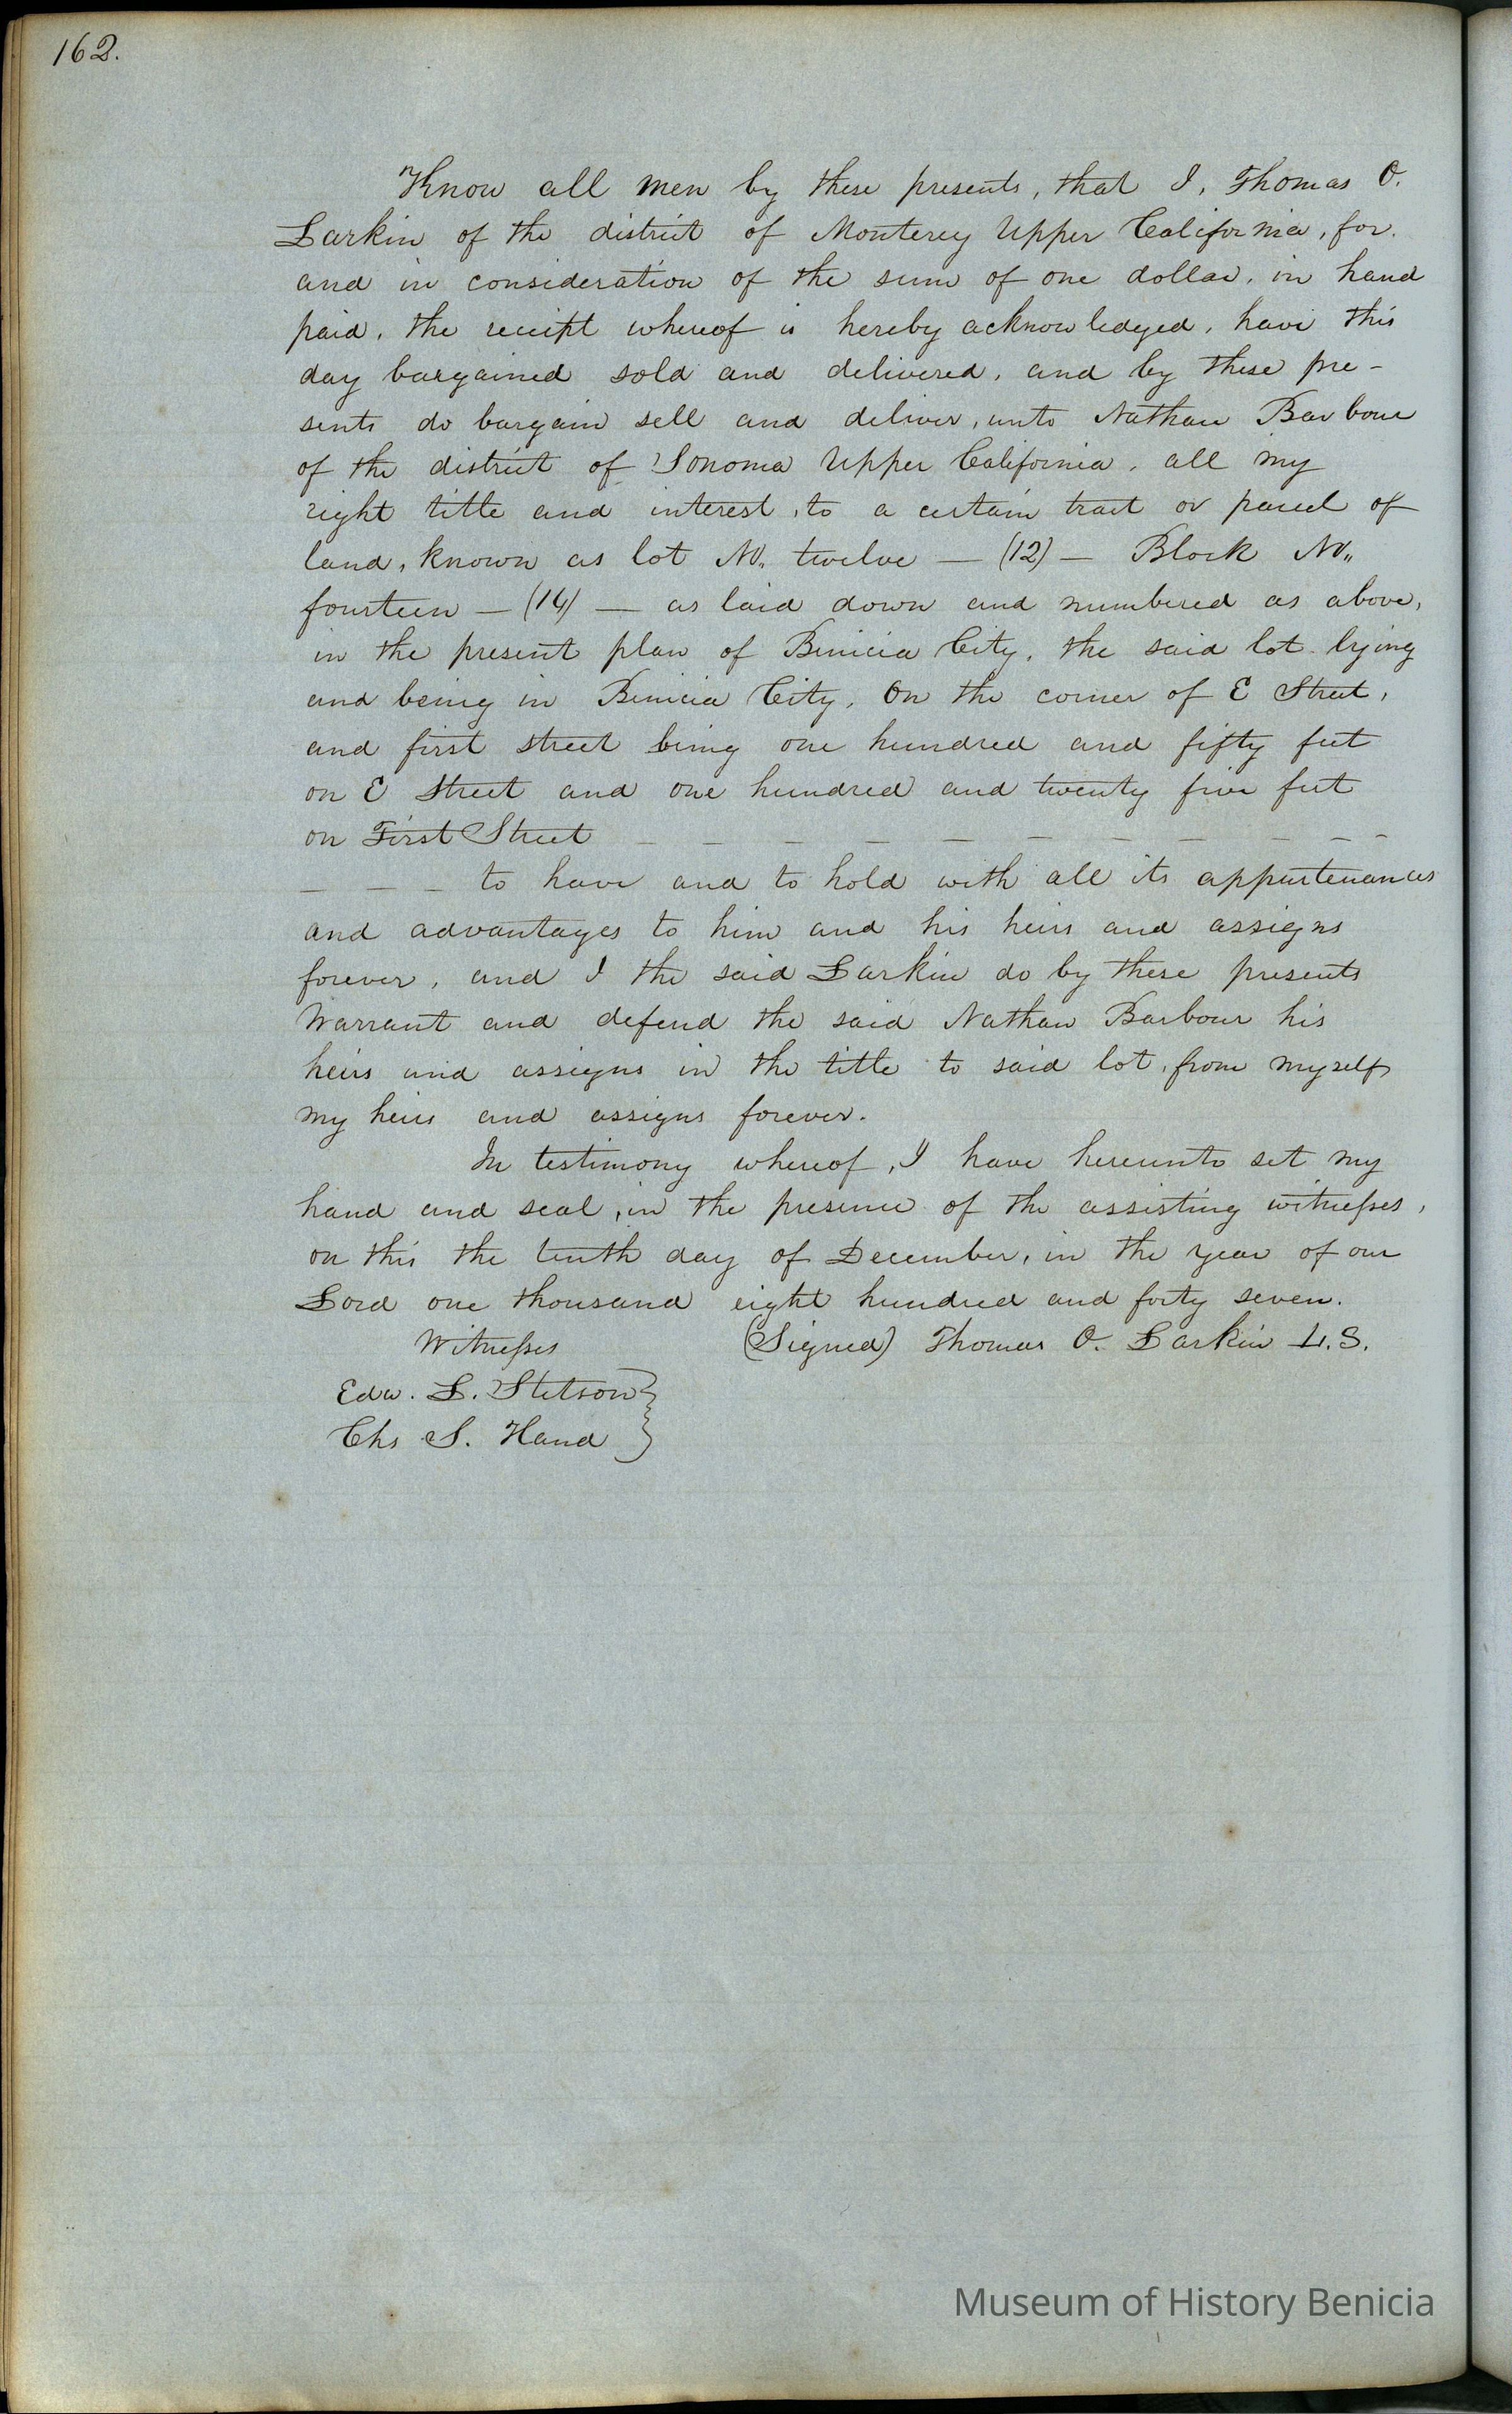 162.
Know all men by these presents, that I, Thomas O.
Larkin of the district of Monterey Upper California, for.
and in consideration of the sum of one dollar, in hand
paid, the receipt whereof is hereby acknowledged, have this
day bargained sold and delivered, and by these pre-
sents do bargain sell and deliver, unto Nathan Barbour
of the district of Sonoma Upper California, all my
right title and interest, to a certain tract or parcel of
land, known as lot No. twelve — (12) — Block No.
fourteen — (14) — as laid down and numbered as above,
in the present plan of Benicia City, the said lot lying
and being in Benicia City, On the corner of E Street,
and first street being one hundred and fifty feet
on E Street and one hundred and twenty five feet
on First Street — — — — — — — — — —
— — — to have and to hold with all its appurtenances
and advantages to him and his heirs and assigns
forever, and I the said Larkin do by these presents
Warrant and defend the said Nathan Barbour his
heirs and assigns in the title to said lot, from myself
my heirs and assigns forever.
In testimony whereof, I have hereunto set my
hand and seal, in the presence of the assisting witnesses,
on this the tenth day of December, in the year of our
Lord one thousand eight hundred and forty seven.
Witnesses (Signed) Thomas O. Larkin L.S.
Edw. L. Stetson }
Chs S. Hand }
Museum of History Benicia